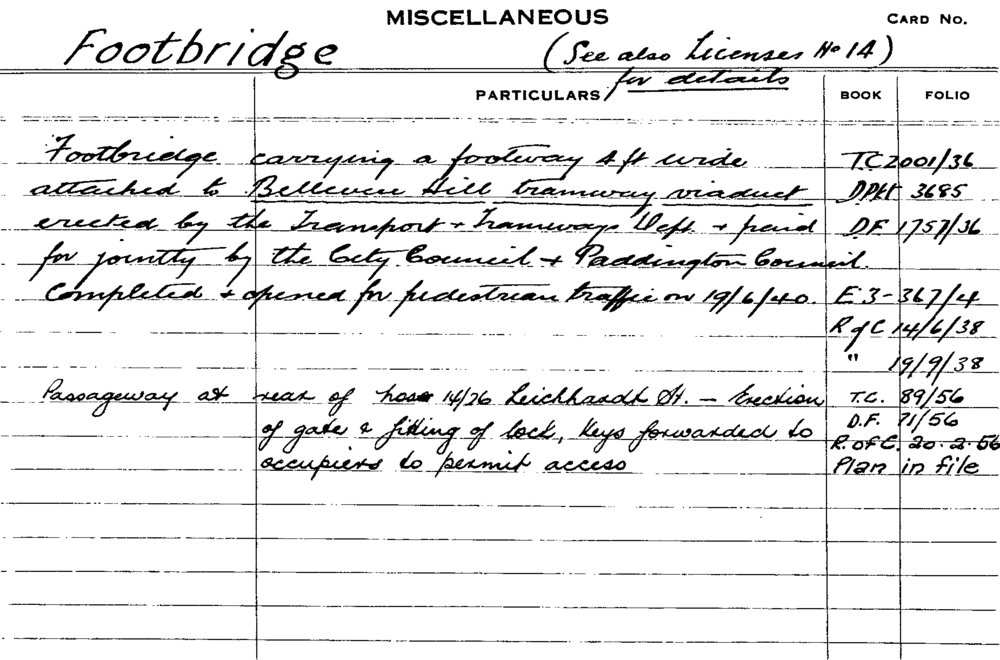 MISCELLANEOUS
CARD No.
Footbridge
(See also Licenses No 14)
for details
PARTICULARS
BOOK
FOLIO
Footbridge carrying a footway 4 ft wide TC 2001/36
attached to Bellevue Hill tramway viaduct DPW 3685
erected by the Transport + Tramways Dept. + paid D.F. 1757/36
for jointly by the City Council + Paddington Council.
Completed + opened for pedestrian traffic on 19/6/40. E3-367/4
R of C 14/6/38
" 19/9/38
Passageway at rear of nos 14/26 Leichhardt St. - Erection T.C. 89/56
of gate & fitting of lock, keys forwarded to D.F. 71/56
R. of C. 20.2.56
occupiers to permit access Plan in file